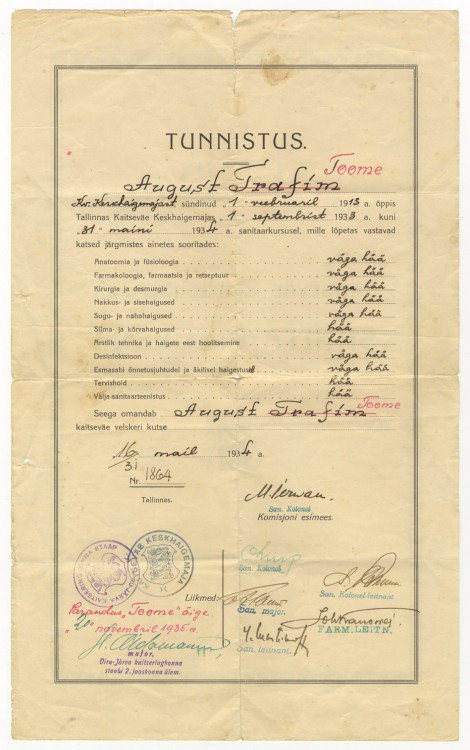 TUNNISTUS.
Toome
August Trafim
Kv. Keskhaigemajast sündinud „1" veebruaril 1913 a. õppis
Tallinnas Kaitseväe Keskhaigemajas „1" septembrist 1933 a. kuni
„31" maini 1934 a. sanitaarkursusel, mille lõpetas vastavad
katsed järgmistes ainetes sooritades:
Anatoomia ja füsioloogia väga hää
Farmakoloogia, farmaatsia ja retseptuur väga hää
Kirurgia ja desmurgia väga hää
Nakkus- ja sisehaigused väga hää
Sugu- ja nahahaigused väga hää
Silma- ja kõrvahaigused hää
Arstlik tehnika ja haigete eest hoolitsemine hää
Desinfektsioon väga hää
Esmasabi õnnetusjuhtudel ja äkilisel haigestusel väga hää
Tervishoid hää
Välja-sanitaarteenistus hää
Seega omandab August Trafim Toome
kaitseväe velskeri kutse
16/31 mail 1934 a.
Nr. 1864
Tallinnas.
San. Kolonel
Komisjoni esimees.
KESKHAIGEMAJA
San. Kolonel.
San. Kolonel-leitnant.
Liikmed:
San. major.
FARM. LEITN.
San. leitnant.
Parandus „Toome" õige
„20" novembril 1935 a.
major.
Viru-Järva kaitseringkonna
staabi 2. jaoskonna ülem.